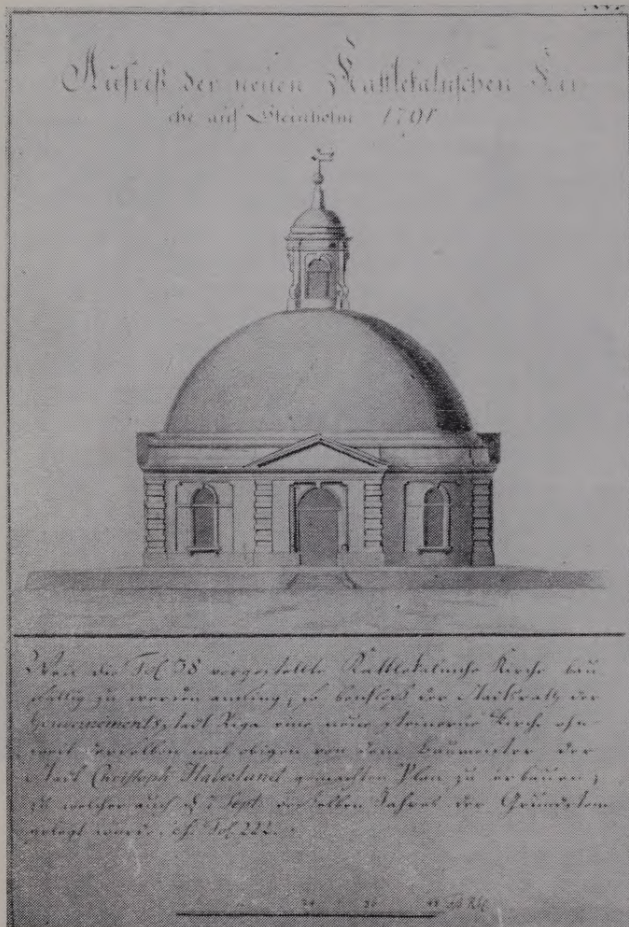 Aufriß der neuen Kattlekalnschen Kir
che auf Steinholm 1791
Weil die Fol 38 vorgestellte Kattlekalnsche Kirche bau
fällig zu werden anfing, so beschloß der Stadtrath der
Gouvernements Stadt Riga eine neue steinerne Kirche ohn
weit derselben nach obigen von dem Baumeister der
Stadt Christoph Haberland gemachten Plan zu erbauen,
zu welcher auch d 7 Sept. desselben Jahres der Grundstein
gelegt wurde. cf. Fol. 222.
24 36 48 Fuß